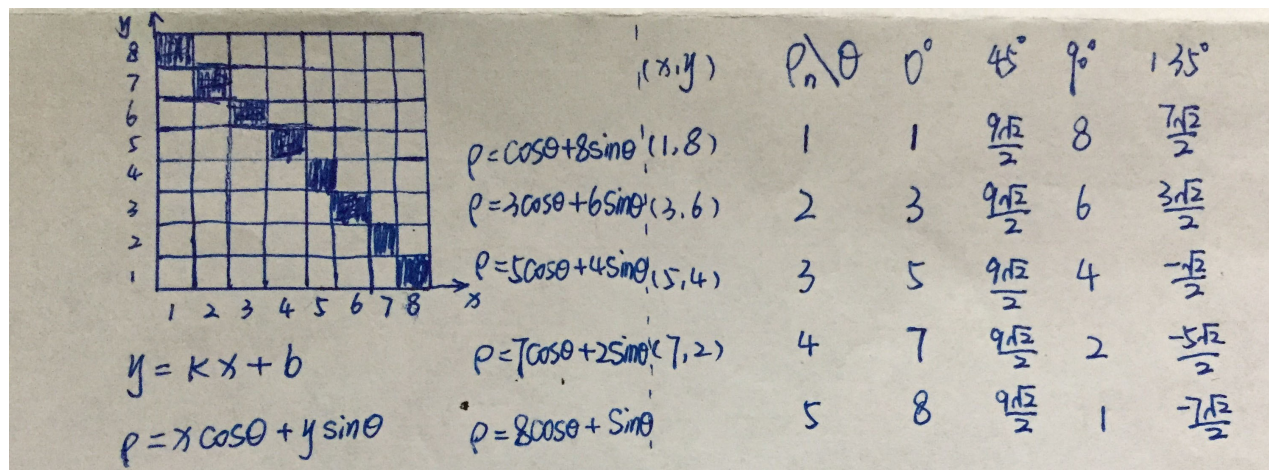 y
8
7
6
5
4
3
2
1
1 2 3 4 5 6 7 8 x
y = kx + b
ρ = x cosθ + y sinθ
(x,y) ρn\θ 0° 45° 90° 135°
ρ=cosθ+8sinθ (1,8) 1 1 9√2/2 8 7√2/2
ρ=3cosθ+6sinθ (3,6) 2 3 9√2/2 6 3√2/2
ρ=5cosθ+4sinθ (5,4) 3 5 9√2/2 4 -√2/2
ρ=7cosθ+2sinθ (7,2) 4 7 9√2/2 2 -5√2/2
ρ=8cosθ+Sinθ 5 8 9√2/2 1 -7√2/2